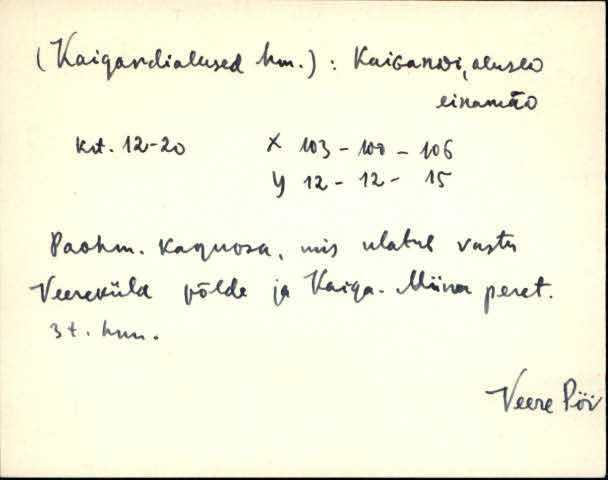 (Kaigandialused hm.): Kaigandi, alused
einamäo
krt. 12-20 X 103 - 100 - 106
Y 12 - 12 - 15
Paohm. kaguosa, mis ulatub vastu
Veereküla põlde ja Kaiga-Miina peret.
3 t. hm.
Veere Pöi